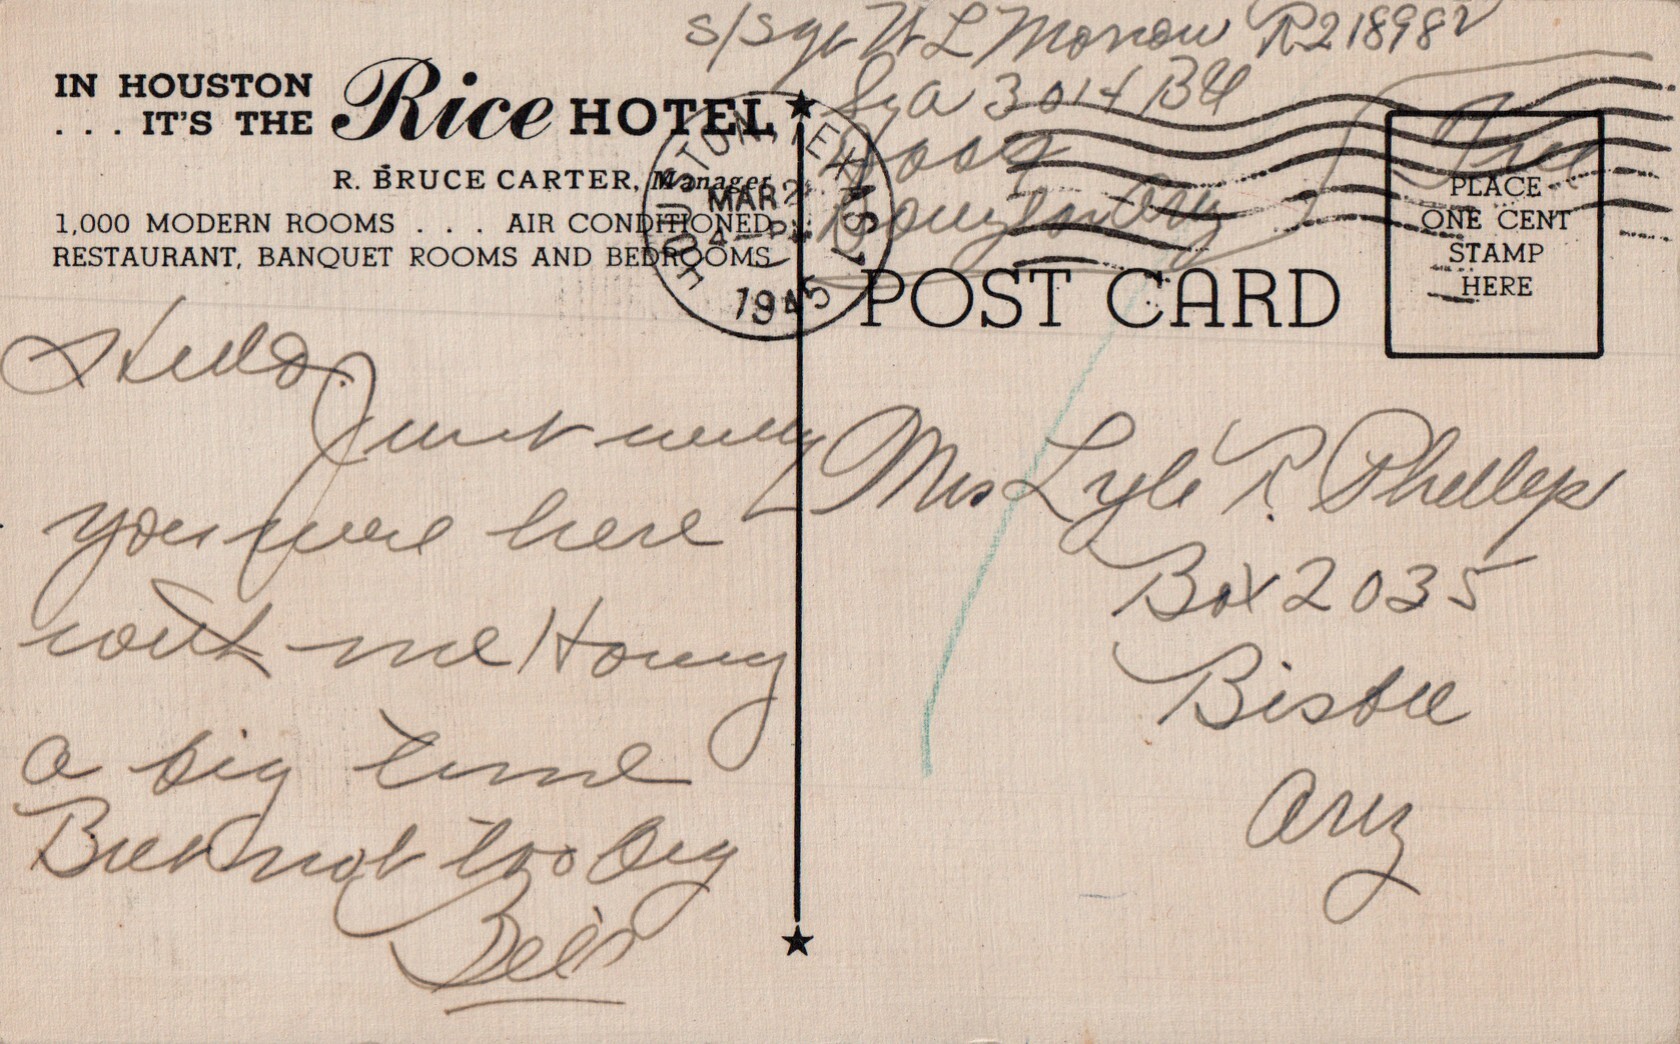 S/Sgt W L Morrow R218982
Sqd 3014 BU
Free
IN HOUSTON
. . . IT'S THE Rice HOTEL
R. BRUCE CARTER, Manager
1,000 MODERN ROOMS . . . AIR CONDITIONED
RESTAURANT, BANQUET ROOMS AND BEDROOMS
HOUSTON, TEX
MAR 2
4 - PM
1945
Douglas Ariz
PLACE
ONE CENT
STAMP
HERE
POST CARD
Hello.
Just wish
you were here
with me Having
a big time
But not too big
Bill
Mrs Lyle P. Phillips
Box 2035
Bisbee
Ariz